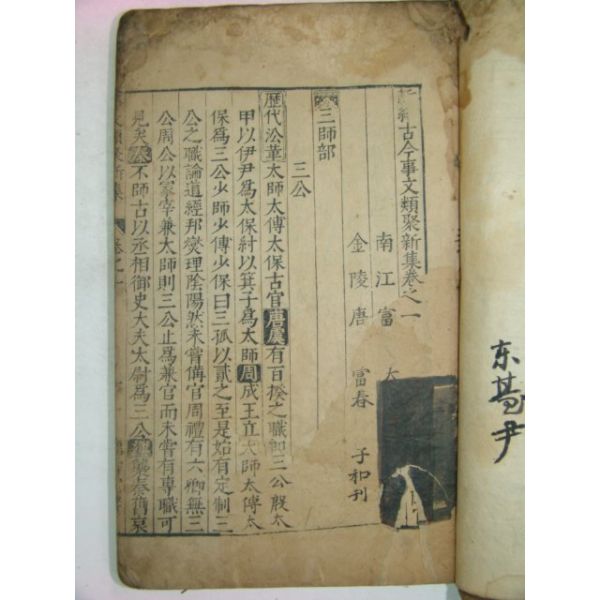 古今事文類聚新集卷之一
南江富大
金陵唐富春子和刊
三師部
三公
歷代沿革太師太傅太保古官唐虞有百揆之職卽三公殷太
甲以伊尹爲太保紂以箕子爲太師周成王立太師太傅太
保爲三公少師少傅少保曰三孤以貳之至是始有定制三
公之職論道經邦燮理陰陽然未嘗備官周禮有六卿無三
公周公以冢宰兼太師則三公止爲兼官而未嘗有專職可
見矣秦不師古以丞相御史大夫太尉爲三公漢襲秦舊哀
文類聚新集 卷之一
东
尹